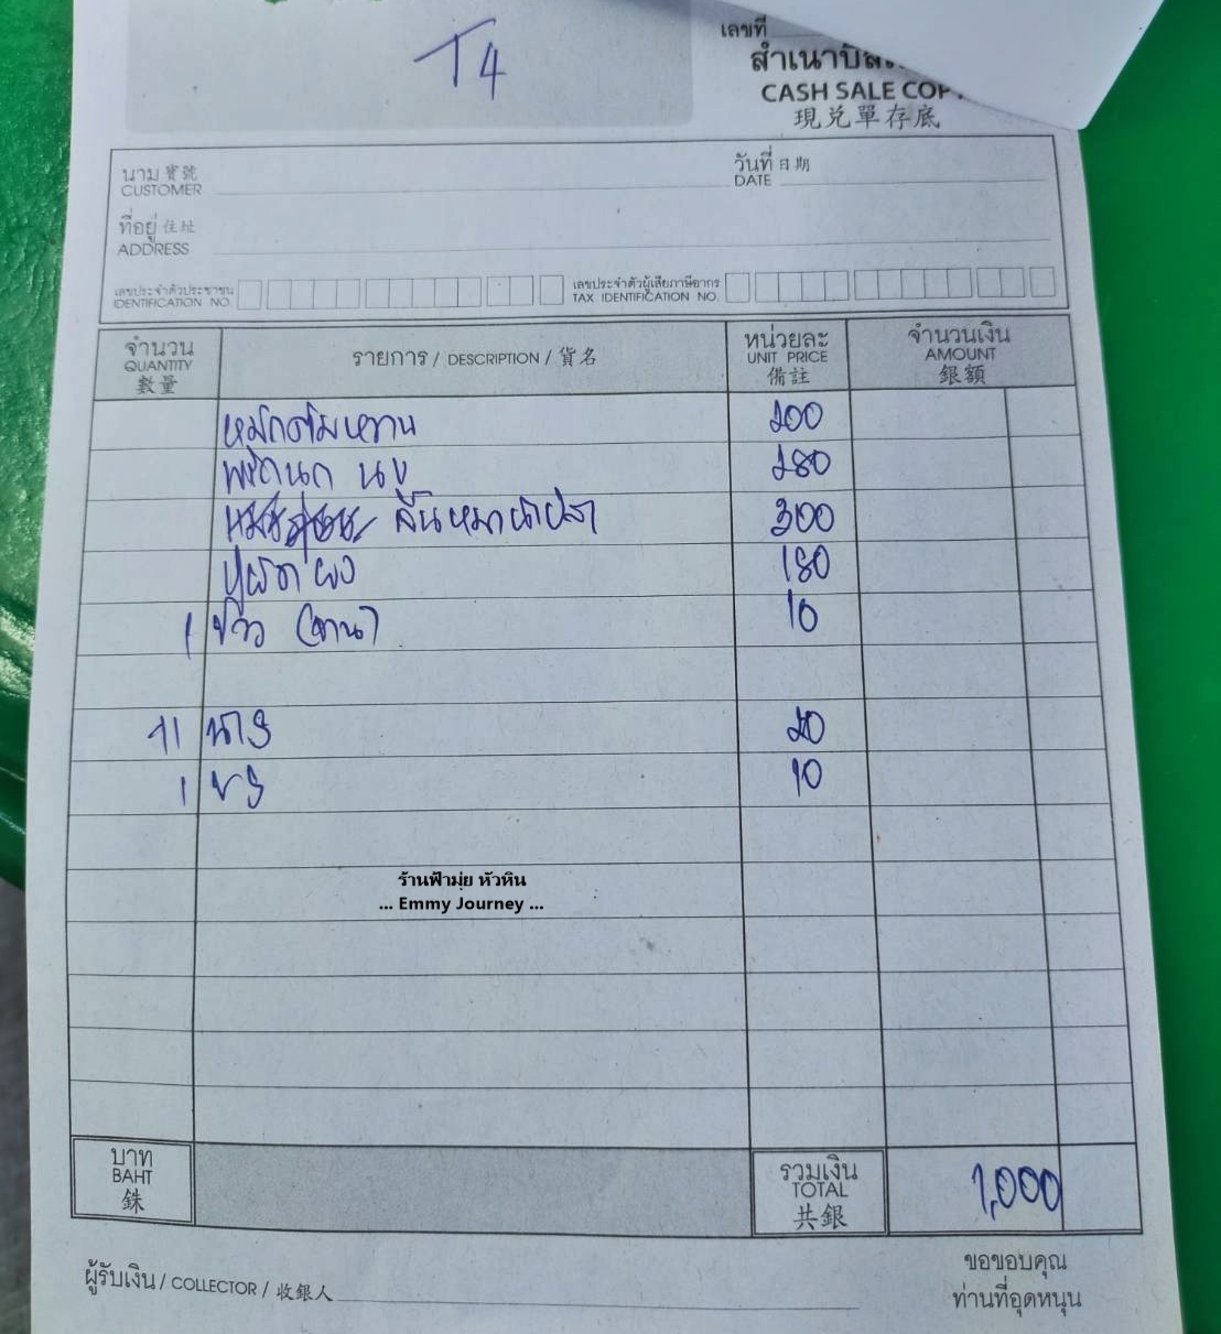 T4
เลขที่
สำเนาบิล
CASH SALE COP
現兌單存底
นาม 寶號
CUSTOMER
วันที่ 日期
DATE
ที่อยู่ 住址
ADDRESS
เลขประจำตัวประชาชน
IDENTIFICATION NO.
เลขประจำตัวผู้เสียภาษีอากร
TAX IDENTIFICATION NO.
จำนวน
QUANTITY
數量
รายการ / DESCRIPTION / 貨名
หน่วยละ
UNIT PRICE
備註
จำนวนเงิน
AMOUNT
銀額
หมึกต้มหวาน 200
280
ลิ้นหมาน้ำปลา 300
ปูผัดผง 180
1 ข้าว (จาน) 10
20
1 10
ร้านฟ้ามุ่ย หัวหิน
... Emmy Journey ...
บาท
BAHT
銖
รวมเงิน
TOTAL
共銀
1,000
ผู้รับเงิน / COLLECTOR / 收銀人
ขอขอบคุณ
ท่านที่อุดหนุน